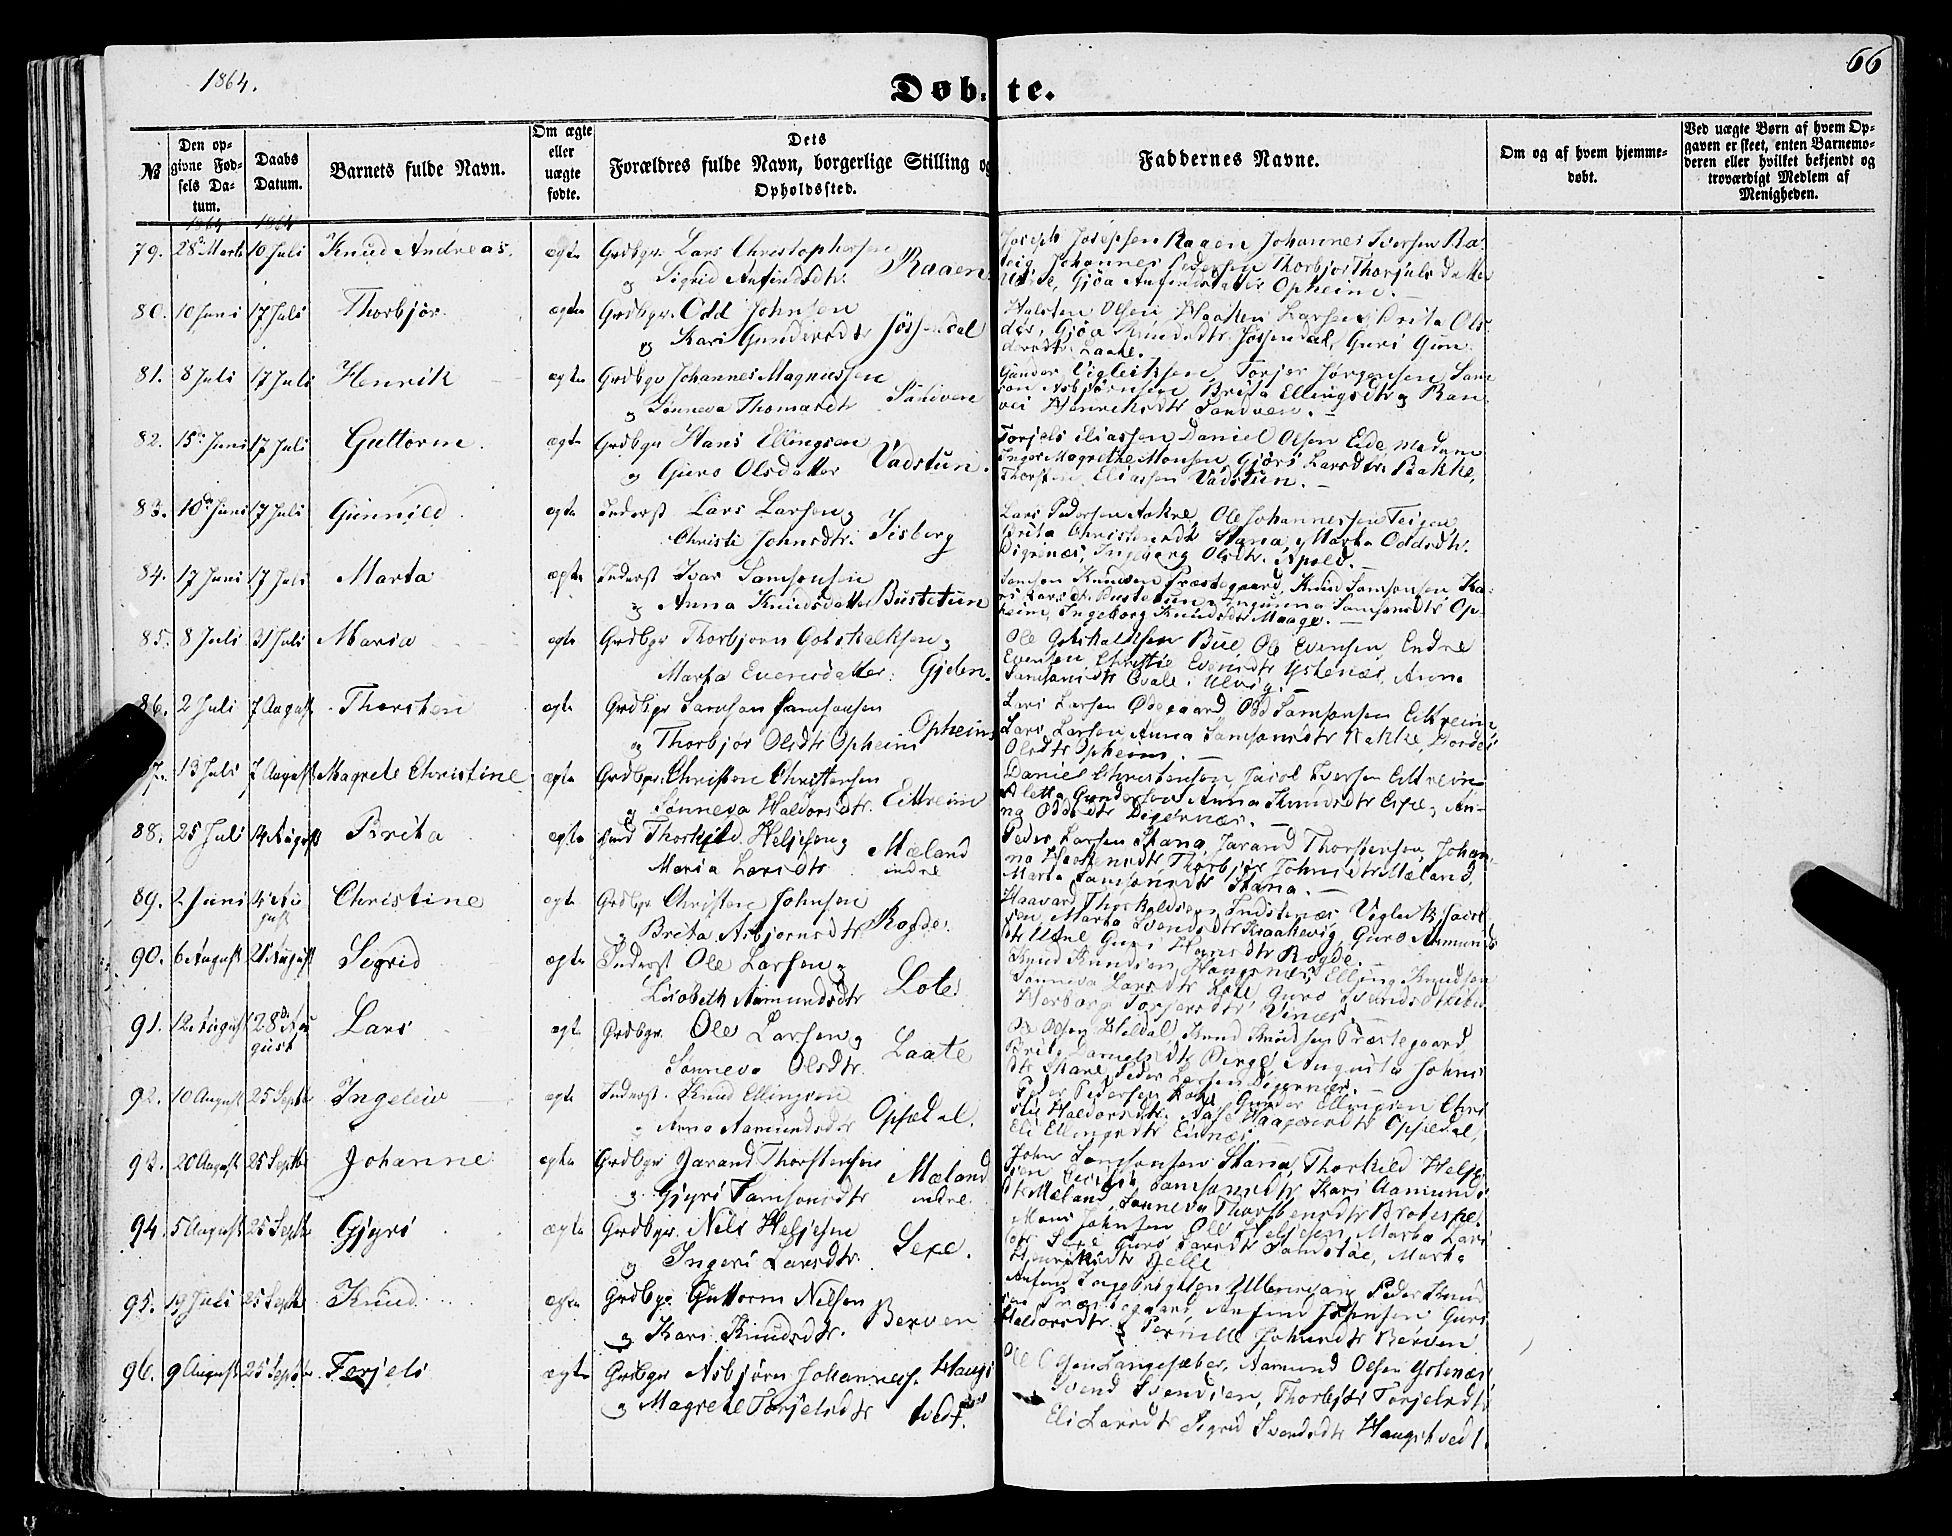 1864.
Døbte.
66
№
Den opgivne Fødsels Datum.
Daabs Datum.
Barnets fulde Navn.
Om ægte eller uægte fødte.
Dets Forældres fulde Navn, borgerlige Stilling og Opholdssted.
Faddernes Navne.
Om og af hvem hjemmedøbt.
Ved uægte Børn af hvem Opgaven er skeet, enten Barnemoderen eller hvilket bekjendt og troværdigt Medlem af Menigheden.
1864 1864
79. 28de Marts 10 Juli Knud Andreas. ægte Grdbgr. Lars Christophersen
og Sigrid Anfindsdtr. Raaen.
Joseph Josepsen Raaen, Johannes Iversen
Johannes Pedersen Thorbjør Thorjuls datter
Utne, Gjøa Anfindsdatter Opheim.
80. 10 Juni 17 Juli Thorbjør ægte Grdbgr. Odd Johnsen
og Kari Gundersdtr Jøssendal
Halsten Olsen, Haaken Larsen, Brita Ols
dtr, Gjøa Knudsdtr. Jøssendal, Guri Gun
dersdtr. Laate.
81. 8 Juli 17 Juli Henrik ægte Grdbgr Johannes Magnussen
og Sønneva Thomasdtr Sandven
Gunder Vigleiksen, Torjer Jørgensen, Sam
son Asbjørnsen, Brita Ellingsdtr og Ran
vei Henriksdtr Sandven.
82. 15de Juni 17 Juli Guttorm. ægte Grdbgr Hans Ellingsen
og Guro Olsdatter Vadstun.
Torjels Eliassen, Daniel Olsen Eide, Madam
Inger Magrethe Monsen, Gjøri Larsdtr. Bakke,
Thorsten Eliassen Vadstun.
83. 10de Juni 17 Juli Gunnild ægte Inderst Lars Larsen og
Christi Johnsdtr. Isberg
Lars Pedersen Aakre, Ole Johannessen Teigen,
Brita Christensdtr Stana, Marta Oddsdtr.
Digrenæs, Ingeborg Olsdtr. Apold.
84. 17 Juni 17 Juli Marta ægte Inderst Ivar Samsonsen
og Anna Knudsdatter Bustetun
Samson Knudsen Præstegaard, Knud Samsonsen, Ka-
ri Larsdtr Bustetun, Ingunna Samsonsdtr Op-
heim, Ingeborg Knudsdtr Maage.
85. 8 Juli 31 Juli Maria ægte Grdbgr Thorbjørn Gotskalksen og
Marta Evensdatter. Gjøen.
Ole Gotskalksen Bue, Ole Evensen, Endre
Evensen, Christie Evensdtr Ystenæs, Anna
Samsonsdtr Qvale i Ulvig.
86. 2 Juli 7 August Thorsten ægte Grdbgr Samson Samsonsen
og Thorbjør Olsdtr Opheim Opheim
Lars Larsen Ødegaard, Odd Samsonsen Eitreim,
Lars Larsen, Anna Samsonsdtr Bakke,
Olsdtr Opheim.
87. 13 Juli 7 August Magrete Christine ægte Grdbgr. Christen Christensen
og Sønneva Haldorsdtr. Eittreim
Daniel Christensen, Jacob Iversen Eitreim
Aletta Gundersen, Anna Knudsdtr Espe, An-
na Oddsdtr Digernæs.
88. 25 Juli 14 August Brita ægte Thorkild Heljesen og
Maria Larsdtr. Mæland indre
Peder Larsen Stana, Jarand Thorstensen, Johan-
na Haakensdtr, Thorbjør Johnsdtr Mæland,
Marta Samsonsdtr Stana.
89. 2 Juni 14 August Christine ægte Grdbgr Christen Johnsen
Brita Asbjørnsdtr. Rogde.
Haavard Thorkaldsen Indstenæs, Vigleik
Marta Svendsdtr Kraakevig, Guro Aamunds
dtr Utne, Guri Hansdtr Rogde.
90. 6 August 21 August Sigrid ægte Inderst Ole Larsen og
Lisabeth Aamundsdtr Lote
Knud Knudsen Haugenæs, Elling Knudsen
Sønneva Larsdtr Guro Svendsdtr
Herborg Torjersdtr Vinæs.
91. 12 August 28de August Lars ægte Grdbgr. Ole Larsen og
Sønneva Olsdtr. Laate
Ole Olsen Hildal, Knud Knudsen Præstegaard,
Brita Danielsdtr Berge, Augusta Johns
dtr Mare, Peder Larsen Digernæs.
92. 10 August 25 Septbr Ingeleiv ægte Inderst. Knud Ellingsen
Anna Aamundsdtr Opsædal.
Peder Pedersen Gunder Ellingsen, Chri
stie Haldorsdtr. Opsædal,
Eli Ellingsdtr Eidnæs.
93. 20 August 25 Septbr Johanne ægte Grdbgr Jarand Thorstensen
og Gjyri Samsonsdtr Mæland indre
John Samsonsen Stana, Thorkild Helje
sen, Samsonsdtr, Kari Aamunds
dtr Mæland, Sønneva Thorstensdtr Brotespe.
94. 5 August 25 Septbr Gjyri ægte Grdbgr. Nils Heljesen
og Ingeri Larsdtr. Sexe.
Mons Johnsen, Ole Heljesen, Marta Lars
dtr Sexe, Guro Larsdtr Sandstøe, Marta
Henriksdtr Jelle
95. 19 Juli 25 Septbr Knud ægte Grdbgr. Guttorm Nilsen
og Kari Knudsdtr. Berven
Anfind Ingebrigtsen Ullensvang, Peder Knud
sen Præstegaard, Anfind Johnsen, Guri
Haldorsdtr. & Pernille Johnsdtr Berven
96. 9 August 25 Septbr Torjels ægte Grdbgr Asbjørn Johannes.
og Magrete Torjelsdtr Haugstvedt.
Ole Olsen Langesæter, Aamund Olsen Ystenæs
Svend Svendsen, Thorbjør Torjelsdtr
Eli Larsdtr Sigrid Svendsdtr Haugstvedt.